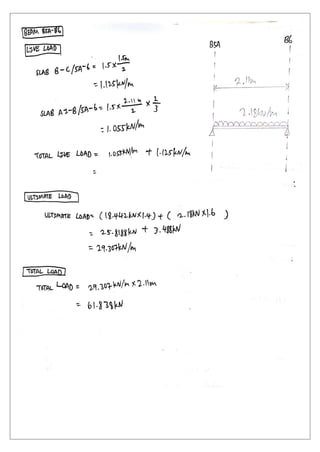 BEAM B5A-B6
LIVE LOAD
SLAB B-C/5A-6 = 1.5 x 1.5m/2
= 1.125kN/m
SLAB A1-B/5A-6 = 1.5 x 2.11m/2 x 2/3
= 1.055kN/m
TOTAL LIVE LOAD = 1.055kN/m + 1.125kN/m
=
B5A B6
2.11m
2.18kN/m
ULTIMATE LOAD
ULTIMATE LOAD = (18.442kN x 1.4) + ( 2.18kN x 1.6 )
= 25.8188kN + 3.488kN
= 29.307kN/m
TOTAL LOAD
TOTAL LOAD = 29.307kN/m x 2.11m
= 61.838kN